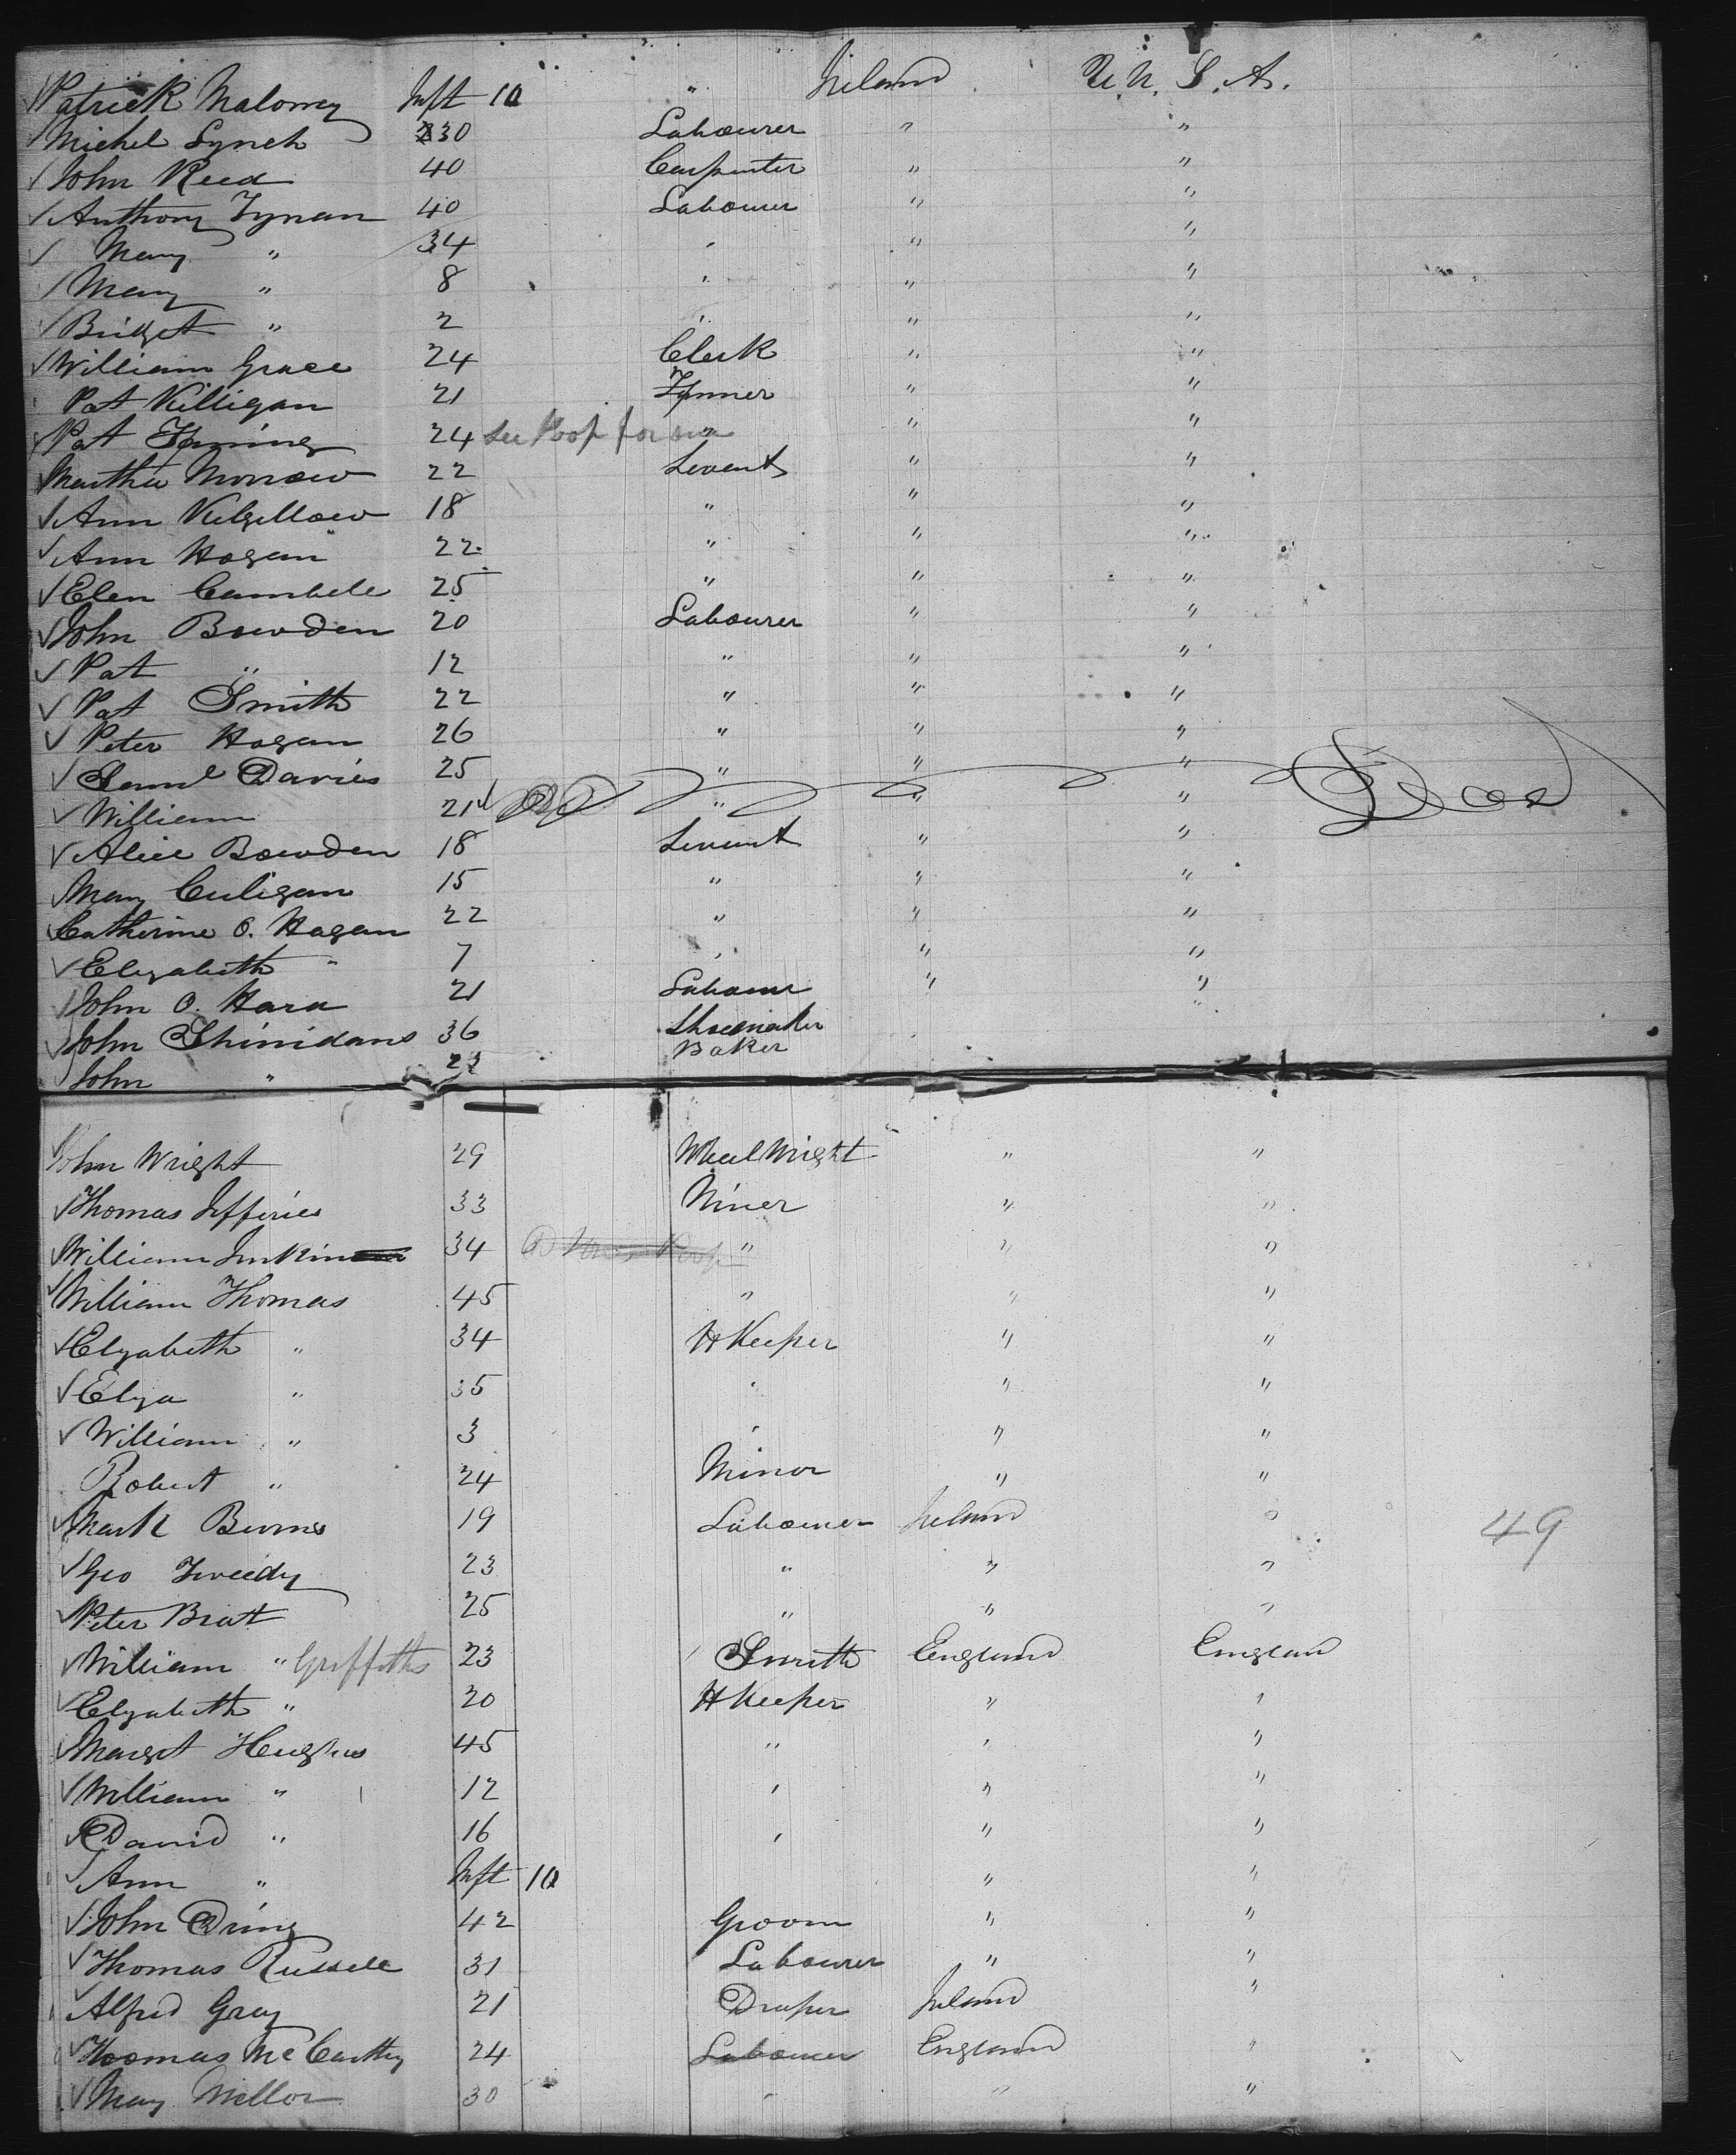 Patrick Maloney Inft 10 " Ireland U. S. A.
Michel Lynch 30 Labourer " "
John Reed 40 Carpenter " "
Anthony Tynan 40 Labourer " "
Mary " 34 " " "
Mary " 8 " " "
Bridget " 2 " " "
William Grace 24 Clerk " "
Pat Killigan 21 " "
Pat 24 See Roof for " "
Martha Morrow 22 Sevent " "
Ann 18 " " "
Ann Hogan 22 " " "
Elen Cambele 25 " " "
John Bowden 20 Labourer " "
Pat " 12 " " "
Pat Smith 22 " " "
Peter Hogan 26 " " "
Saml Davies 25 " " "
William 21 " " "
Alice Bowden 18 Sevent " "
Mary Culigan 15 " " "
Catherine O. Hagan 22 " " "
Elizabeth " 7 " " "
John O. Hara 21 Labourer " "
John Shinidans 36 Shoemaker
John " Baker
John Wright 29 Wheel Wright " "
Thomas Jefferies 33 Miner " "
William Jenkin 34 " " "
William Thomas 45 " " "
Elyabeth " 34 H Keeper " "
Elya " 35 " " "
William " 3 " " "
Robert " 24 Minor " "
Mark Burns 19 Labourer Ireland " 49
Geo Tweedy 23 " " "
Peter Bratt 25 " " "
William " Griffiths 23 Smith England England
Elyabeth " 20 H Keeper " "
Margt Hughes 45 " " "
William " 12 " " "
David " 16 " " "
Ann " Inft 10 " "
John Dring 42 Groom " "
Thomas Russell 31 Labourer " "
Alfred Gray 21 Draper Ireland "
Thomas McCarthy 24 Labourer England "
Mary Mellor 30 " " "